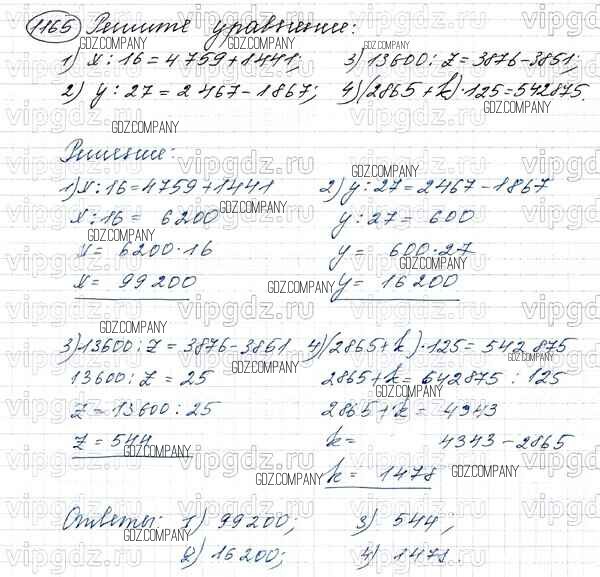 1165 Решите уравнение:
1) x : 16 = 4759 + 1441; 3) 13600 : z = 3876 - 3851;
2) y : 27 = 2467 - 1867; 4) (2865 + k) · 125 = 542875.
Решение:
1) x : 16 = 4759 + 1441 2) y : 27 = 2467 - 1867
x : 16 = 6200 y : 27 = 600
x = 6200 · 16 y = 600 · 27
x = 99200 y = 16200
3) 13600 : z = 3876 - 3861 4) (2865 + k) · 125 = 542875
13600 : z = 25 2865 + k = 542875 : 125
z = 13600 : 25 2865 + k = 4343
z = 544 k = 4343 - 2865
k = 1478
Ответы: 1) 99200; 3) 544;
2) 16200; 4) 1478.
GDZ.COMPANY
vipgdz.ru